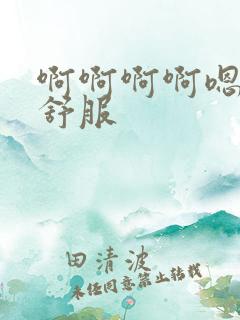 啊啊啊啊嗯
舒服
田清波
未经同意禁止转载